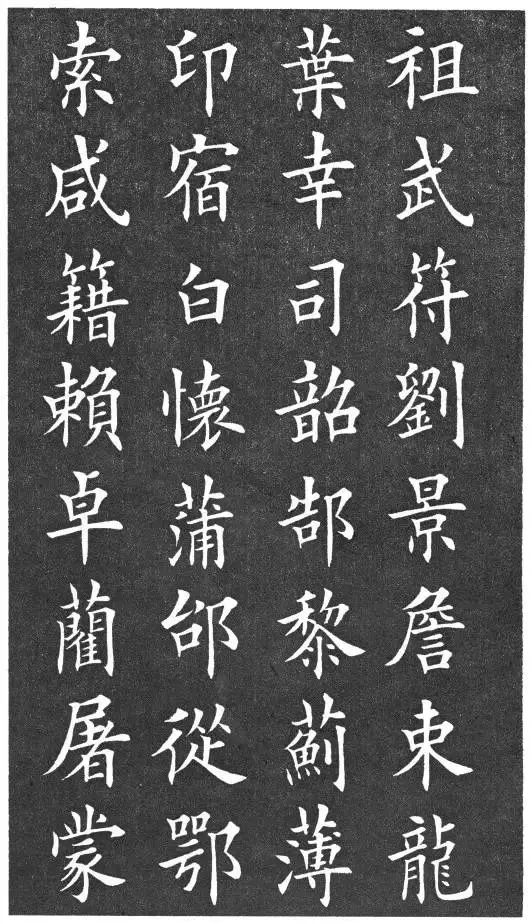 祖武符劉景詹束龍
葉幸司韶郜黎薊薄
印宿白懷蒲邰從鄂
索咸籍賴卓藺屠蒙